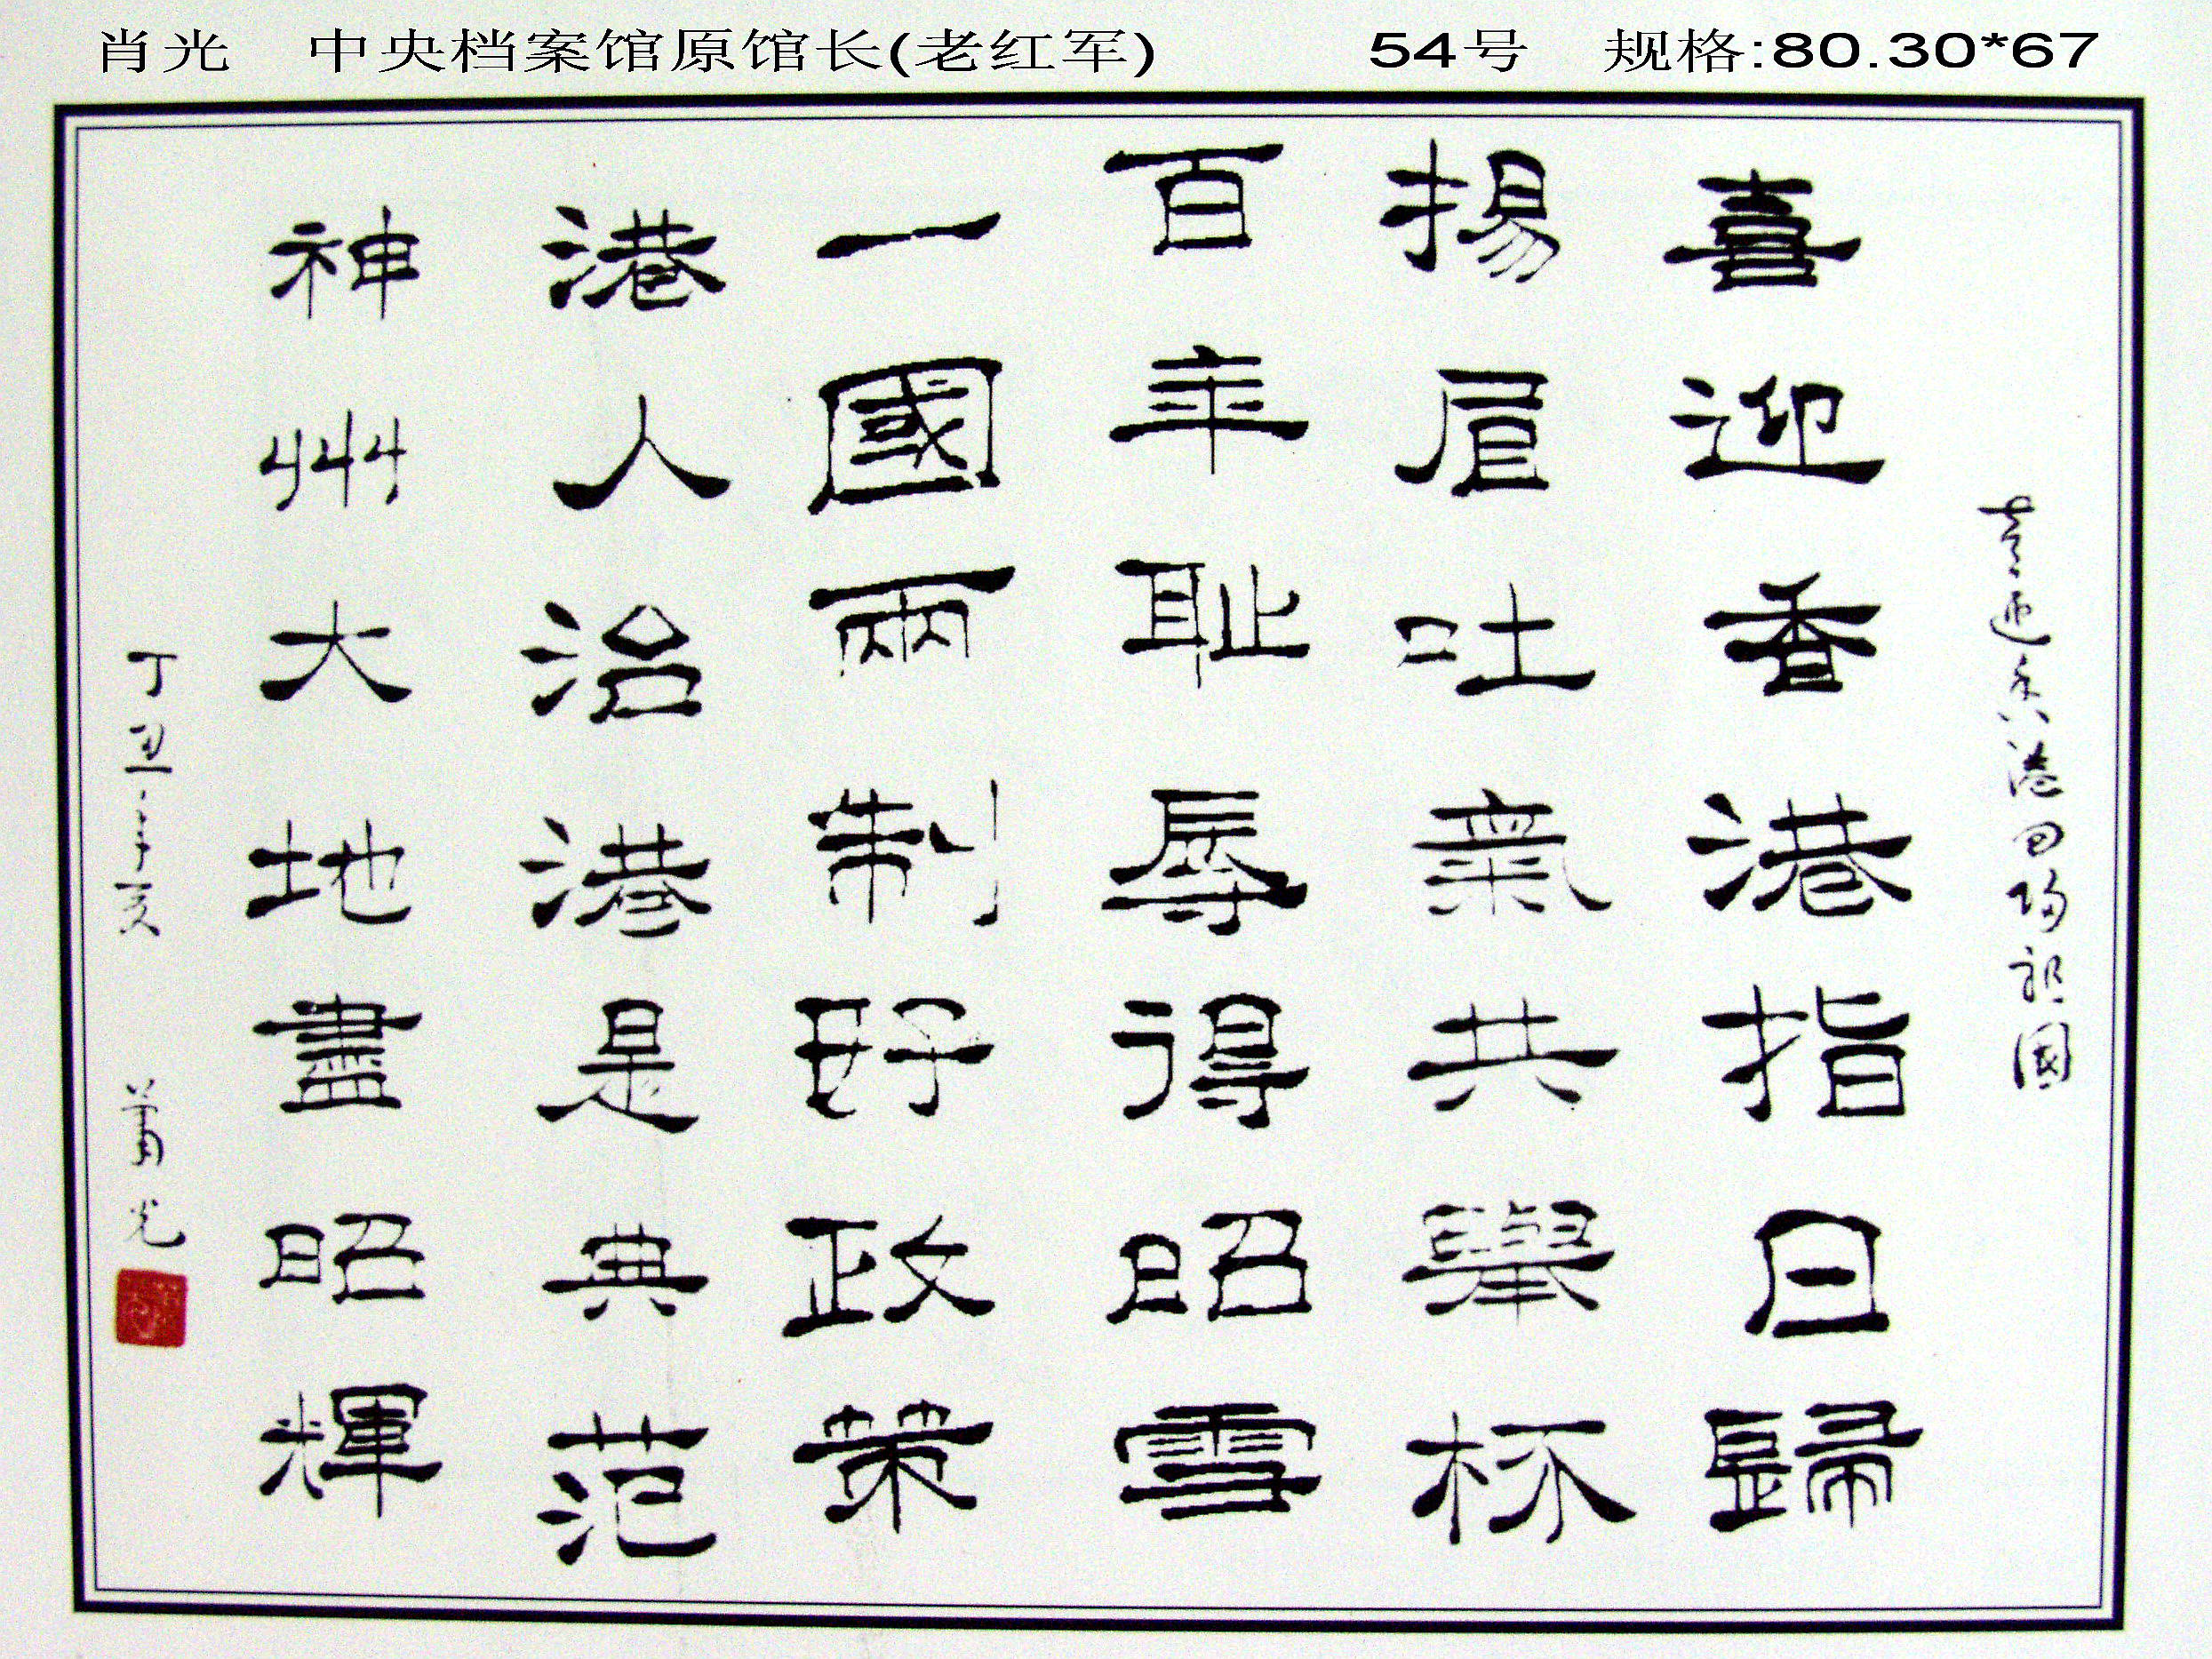 肖光 中央档案馆原馆长(老红军) 54号 规格:80.30*67
喜迎香港回归祖國
喜迎香港指日歸
揚眉吐氣共舉杯
百年耻辱得昭雪
一國兩制好政策
港人治港是典范
神州大地盡昭輝
丁丑年夏
萧光